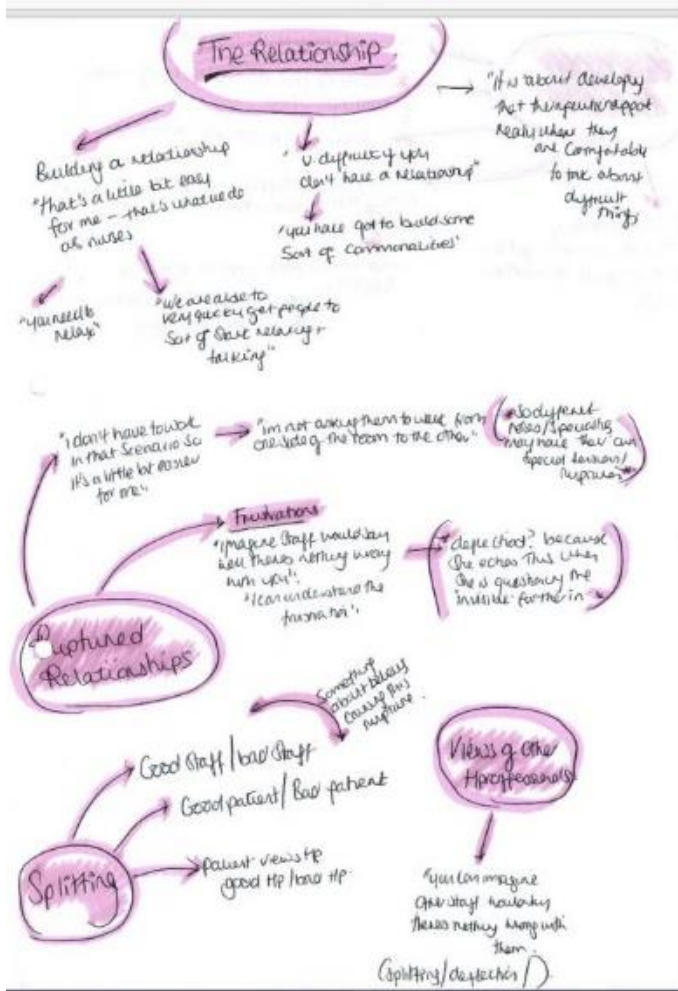 The Relationship
"It is about developing
that therapeutic rapport
really where they
are comfortable
to talk about
difficult
things
Building a relationship
"that's a little bit easy
for me - that's what we do
as nurses
"V. difficult if you
don't have a relationship"
"you have got to build some
sort of commonalities'
"you need to
relax"
"We are able to
very quickly get people to
sort of start relaxing +
talking"
"i don't have to work
in that scenario so
it's a little bit easier
for me".
"im not asking them to walk from
one side of the room to the other"
so different
roles/specialities
may have their own
special tensions/
ruptures
Frustrations
"imagine staff would say
well theres nothing wrong
with you".
"I can understand the
frustration".
deflection? because
she echoes this when
she is questioning the
invisible further in
Ruptured
Relationships
Something
about beliefs
causing this
rupture.
Good staff/bad staff
Good patient/Bad patient
patient views Hp
good Hp/bad Hp.
Splitting
Views of other
Hproffesionals
"you can imagine
other staff
theres nothing wrong with
them.
(splitting/deflection/).